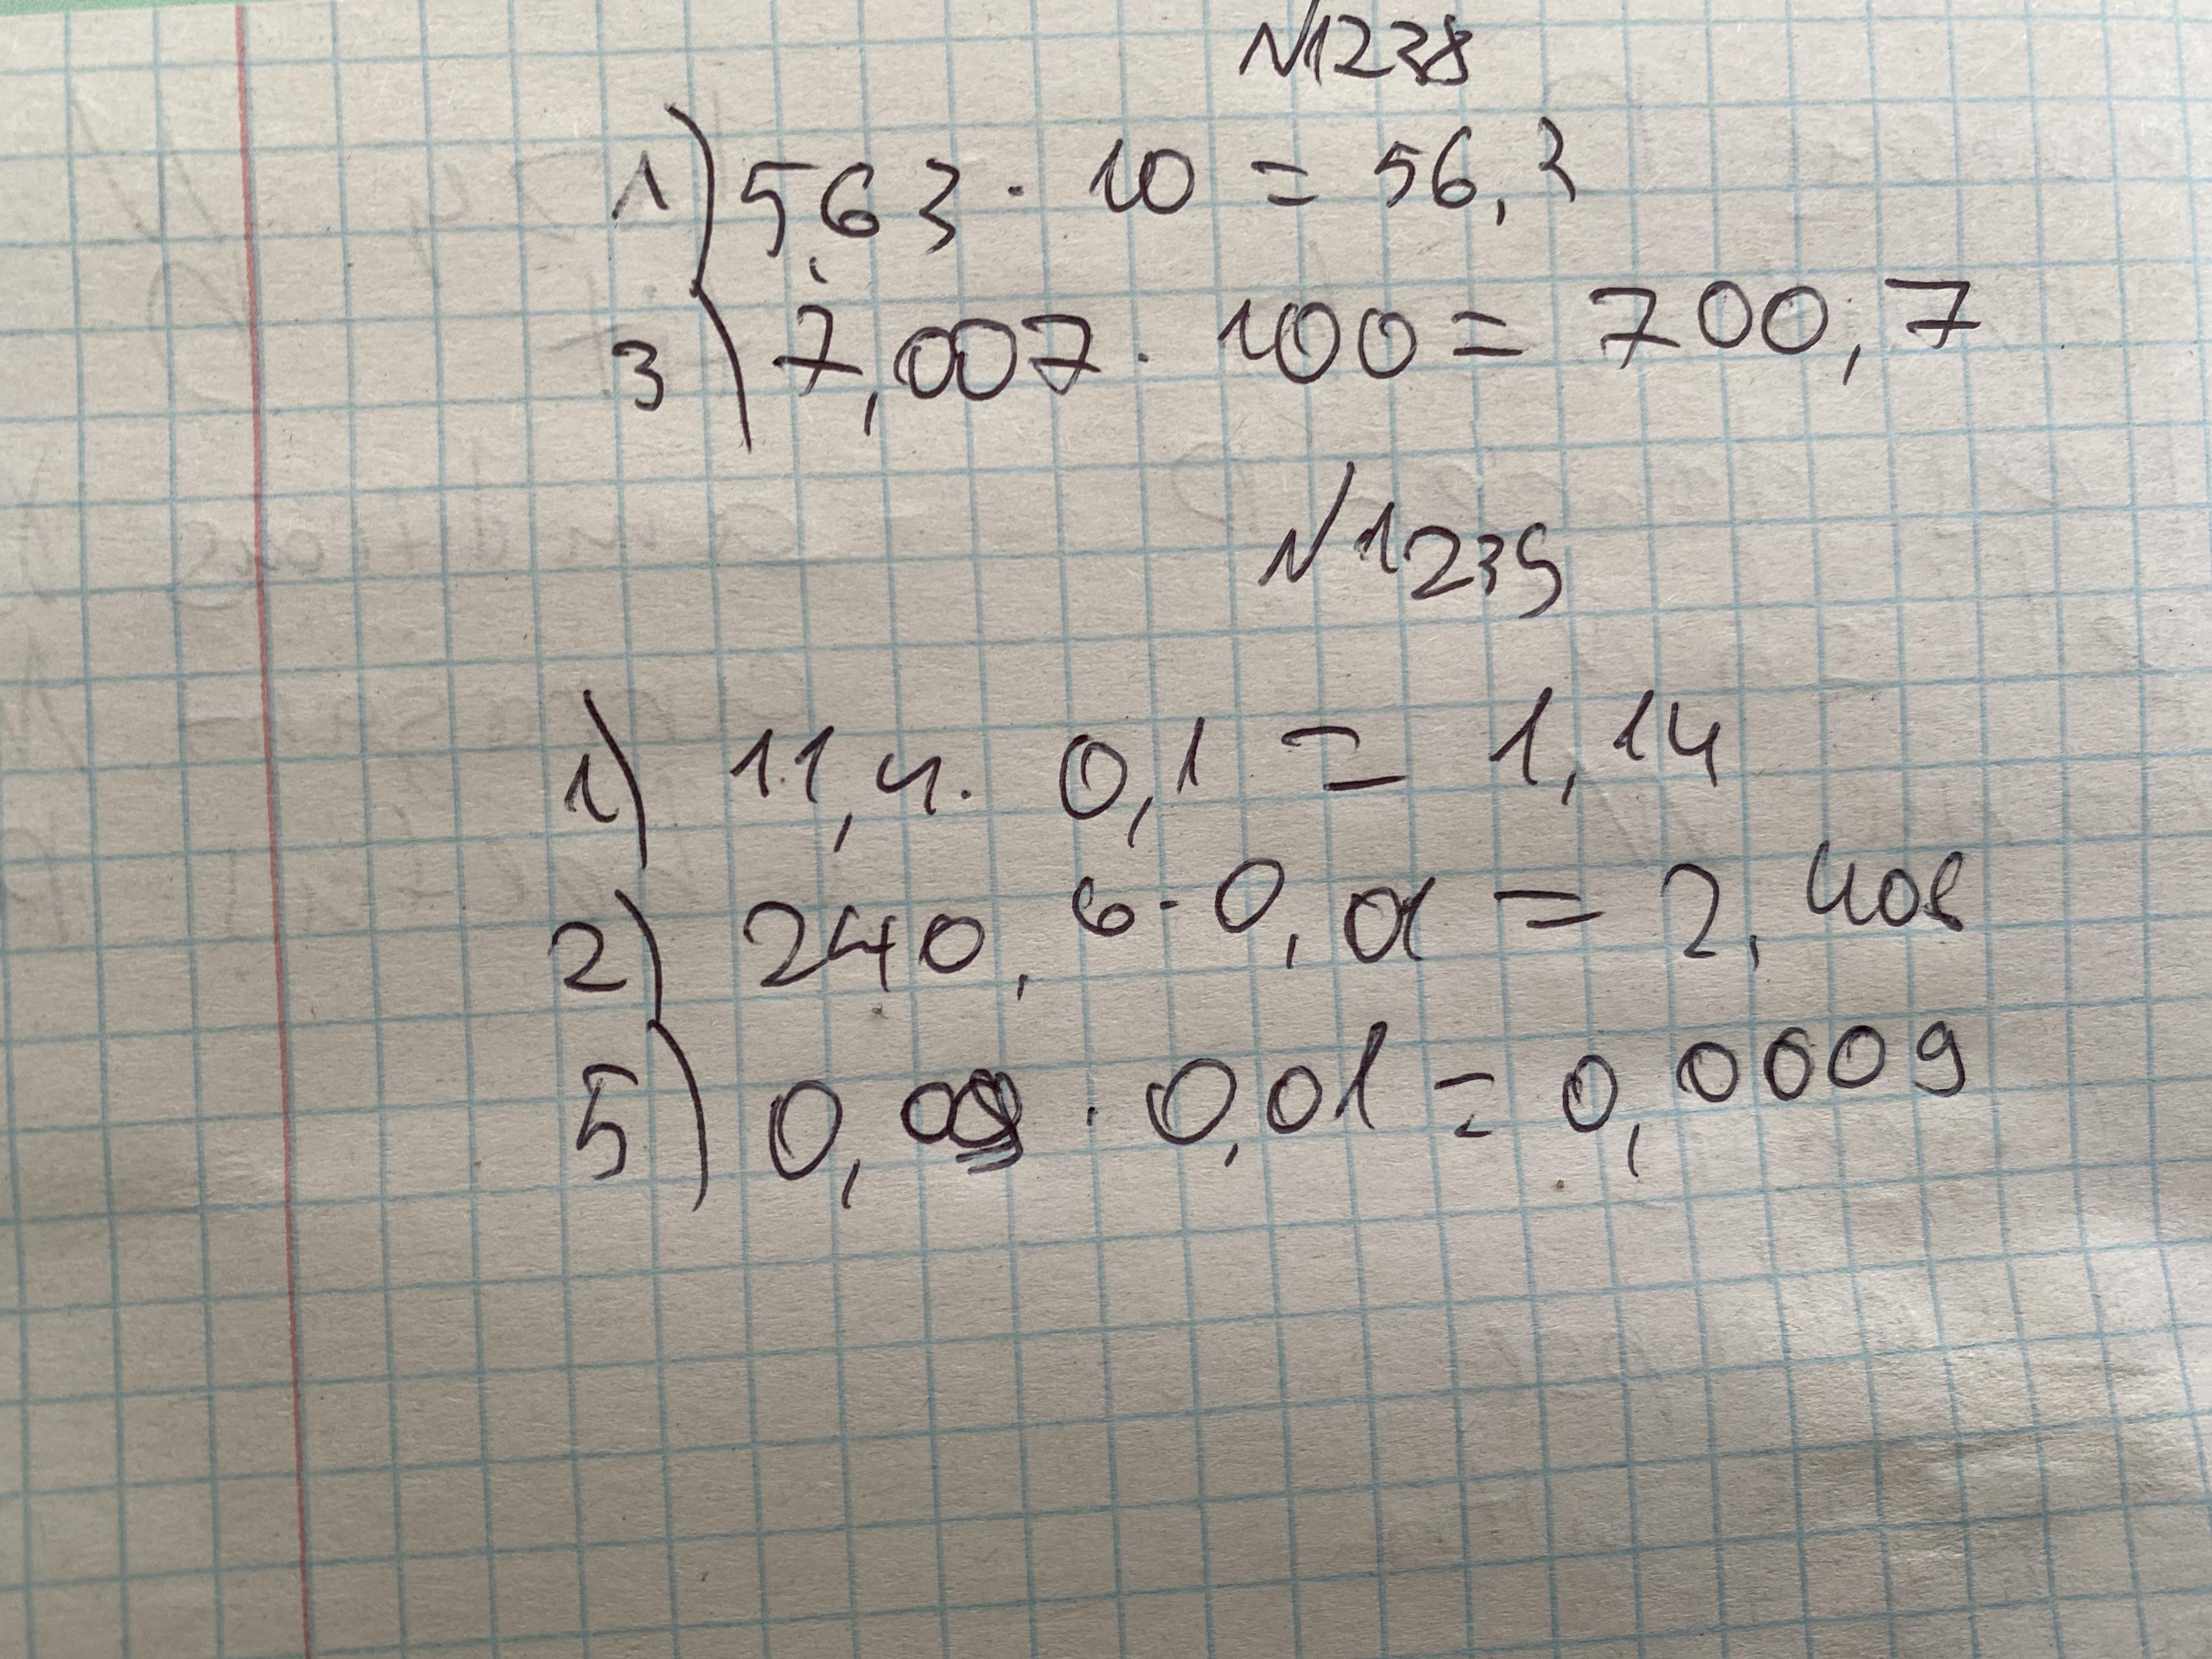 N1238
1) 5,63 · 10 = 56,3
3) 7,007 · 100 = 700,7
N1239
1) 11,4 · 0,1 = 1,14
2) 240,6 · 0,01 = 2,406
5) 0,09 · 0,01 = 0,0009